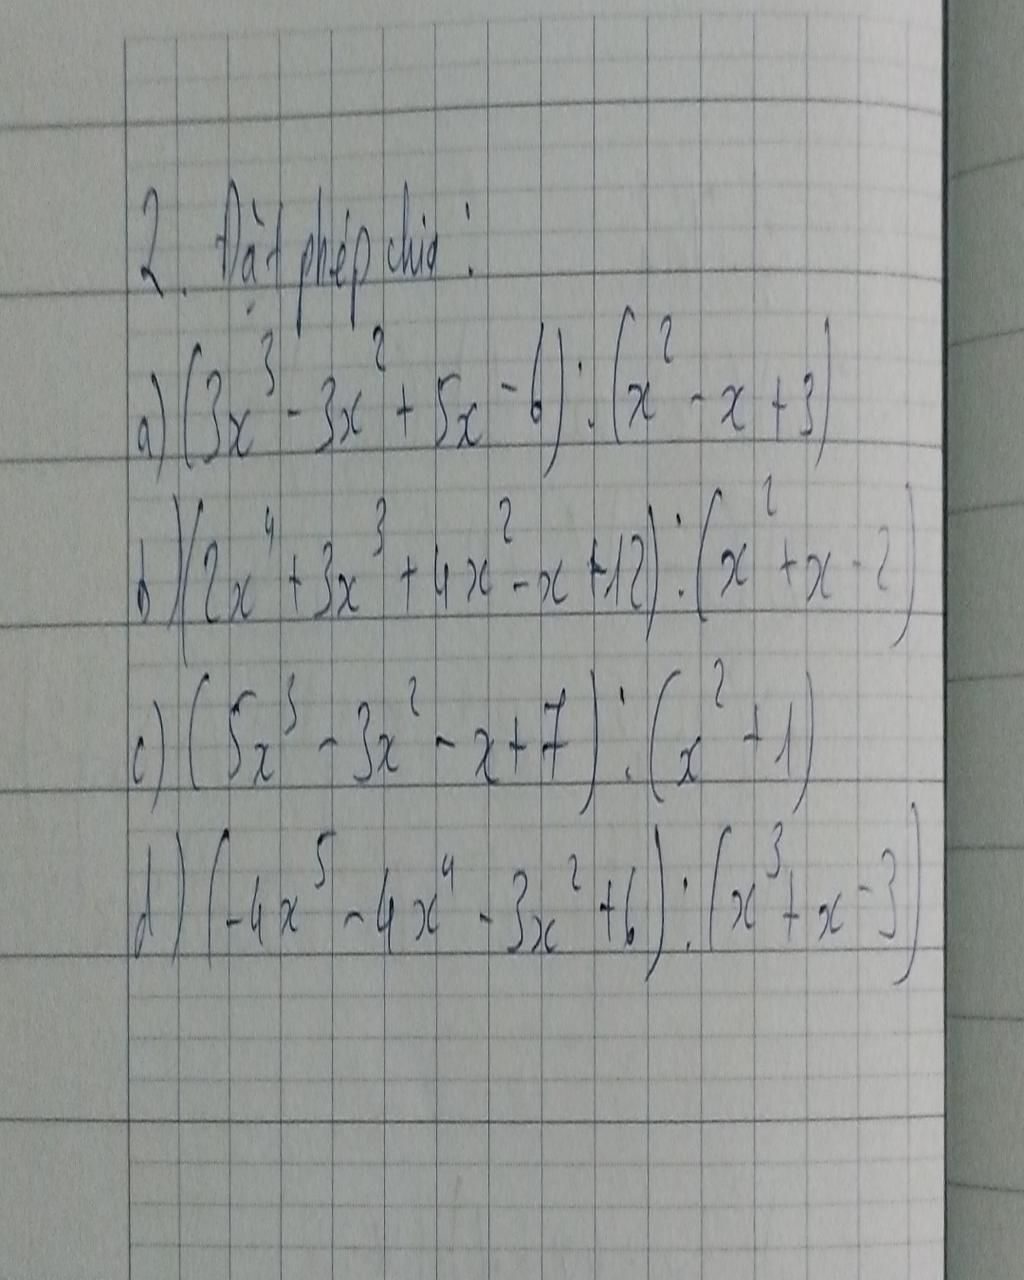 2. Đặt phép chia:
a) (3x³ - 3x² + 5x - 6) : (x² - x + 3)
b) (2x⁴ + 3x³ + 4x² - x + 12) : (x² + x - 2)
c) (5x³ - 3x² - x + 7) : (x² + 1)
d) (-4x⁵ - 4x⁴ - 3x² + 6) : (x³ + x - 3)